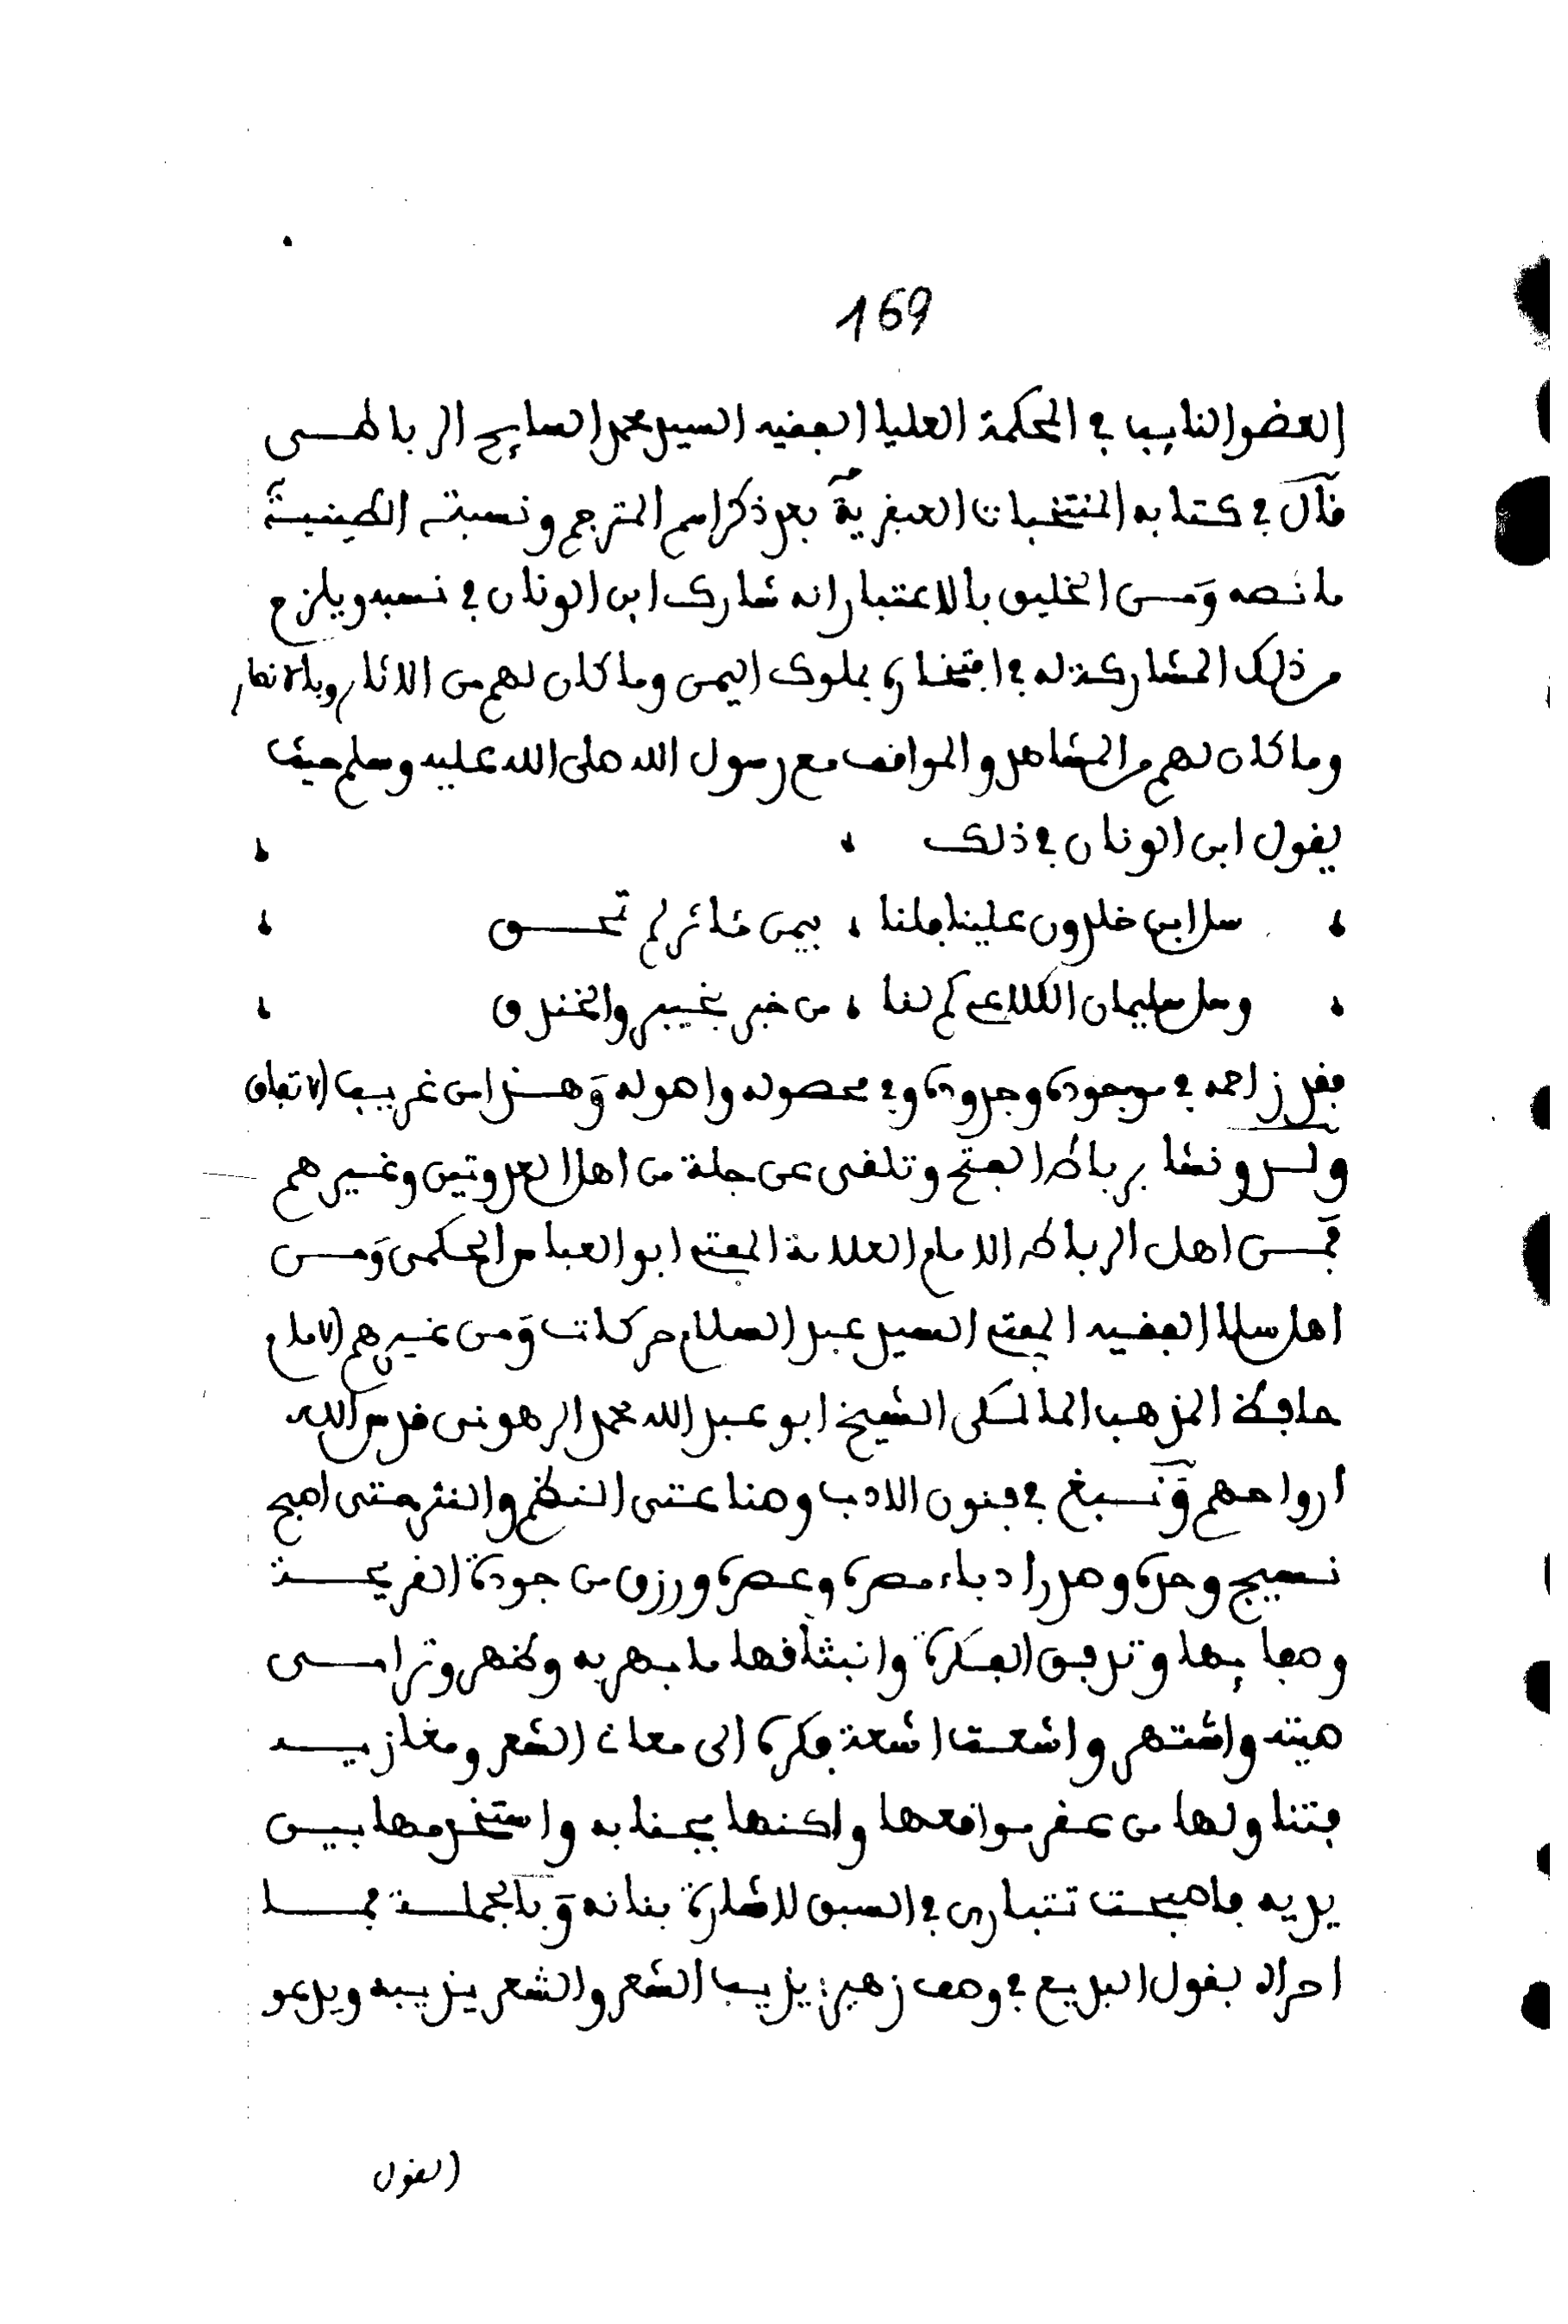 169
العضو النايب في المحكمة العليا الفقيه السيد محمد السايح الرباطـــي
قال في كتابه المنتخبات العبقرية بعد ذكر اسم المترجم ونسبته الطينيـة
ما نصه ومـن الخليق بالاعتبار انه شارك ابن الونان في نسبه ويلزم
من ذلك المشاركة له في افتخاره بملوك اليمن وما كان لهم من الاثار وبالانصار
وما كان لهم من المشاهد والمواقف مع رسول الله صلى الله عليه وسلم حيث
يقول ابن الونان في ذلك
سل ابن خلدون علينا فلنا ، بيمن مآثر لم تمحـــق
وسل سليمان الكلاعي كم لنا ، من خبر بخيبر والخندق
فقد زاحمه في موجوده وجدوده وفي محصوله واصوله وهـذا من غريب الاتفاق
ولـد ونشا برباط الفتح وتلقى عن جلة من اهل العدوتين وغيرهم
فمـن اهل الرباط الامام العلامة المفتي ابو العباس الحكمي ومـن
اهل سلا الفقيه المفتي السيد عبد السلام حركات ومن غيرهم الامام
حافظ المذهب المالكي الشيخ ابو عبد الله محمد الرهوني قدس الله
ارواحهم ونـبغ في فنون الادب وصناعتي النظم والنثر حتى اصبح
نسيج وحده وصدر ادباء مصره وعصره ورزق من جودة القريحـة
وصفايها وتدفق الفكرة وانبثاقها ما بهر به وظهر وترامـى
صيته واشتهر واشعـت اشعة فكره الى معاني الشعر ومغازيـه
فتناولها من عقر مواقعها واكنها بجنابه واستخدمها بيـن
يديه فاصبحت تتبارى في السبق لاشارة بنانه وبالجملـة فمـا
احراه بقول البديع في وصف زهير: يذيب الشعر والشعر يذيبه ويدعو
القول